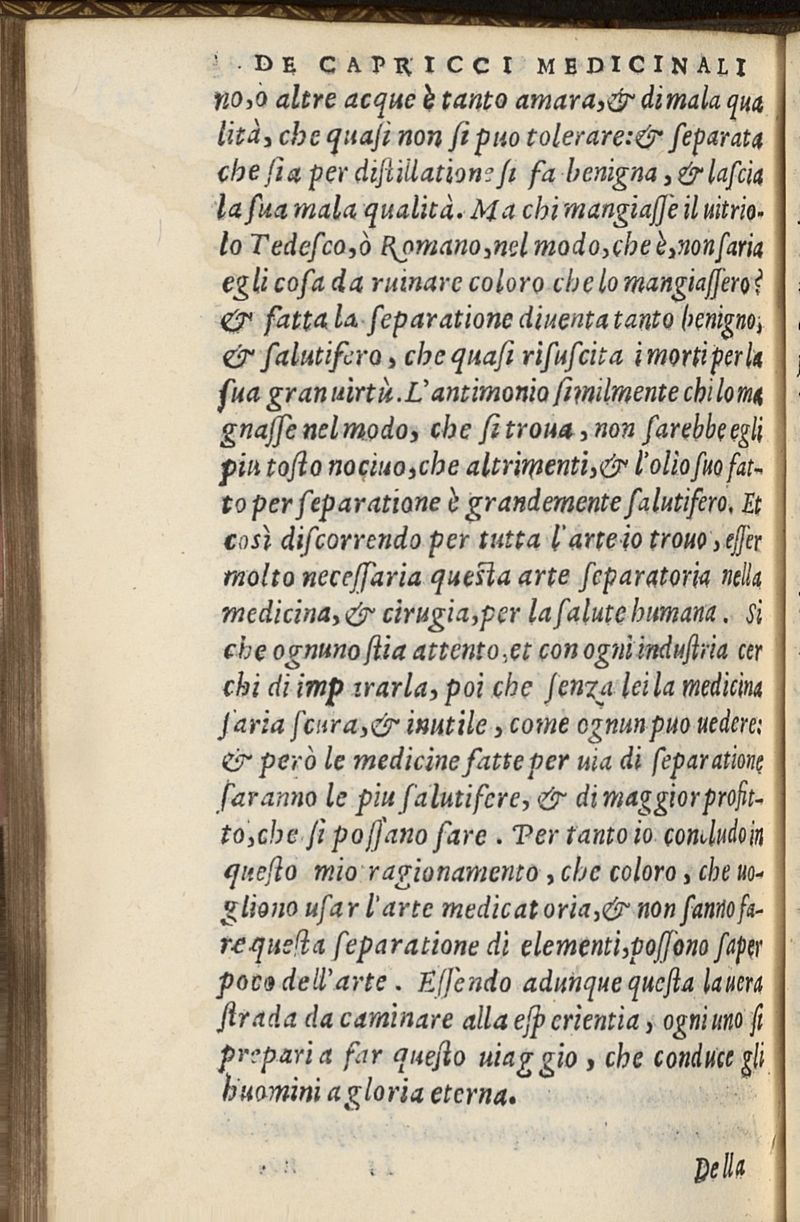 DE CAPRICCI MEDICINALI
no, ò altre acque è tanto amara, & di mala qua
lità, che quaſi non ſi puo tolerare: & ſeparata
che ſia per diſtillatione ſi fa benigna, & laſcia
la ſua mala qualità. Ma chi mangiaſſe il uitrio-
lo Tedeſco, ò Romano, nel modo, che è, non ſaria
egli coſa da ruinare coloro che lo mangiaſſero?
& fatta la ſeparatione diuenta tanto benigno,
& ſalutifero, che quaſi riſuſcita i morti per la
ſua gran uirtù. L'antimonio ſimilmente chi lo ma
gnaſſe nel modo, che ſi troua, non ſarebbe egli
piu toſto nociuo, che altrimenti, & l'olio ſuo fat-
to per ſeparatione è grandemente ſalutifero. Et
così diſcorrendo per tutta l'arte io trouo, eſſer
molto neceſſaria queſta arte ſeparatoria nella
medicina, & cirugia, per la ſalute humana. Si
che ognuno ſtia attento, et con ogni induſtria cer
chi di impararla, poi che ſenza lei la medicina
ſaria ſcura, & inutile, come ognun puo uedere:
& però le medicine fatte per uia di ſeparatione
ſaranno le piu ſalutifere, & di maggior profit-
to, che ſi poſſano fare. Per tanto io concludo in
queſto mio ragionamento, che coloro, che uo-
gliono uſar l'arte medicatoria, & non ſanno fa-
re queſta ſeparatione di elementi, poſſono ſaper
poco dell'arte. Eſſendo adunque queſta la uera
ſtrada da caminare alla eſperientia, ogni uno ſi
prepari a far queſto uiaggio, che conduce gli
huomini a gloria eterna.
Della